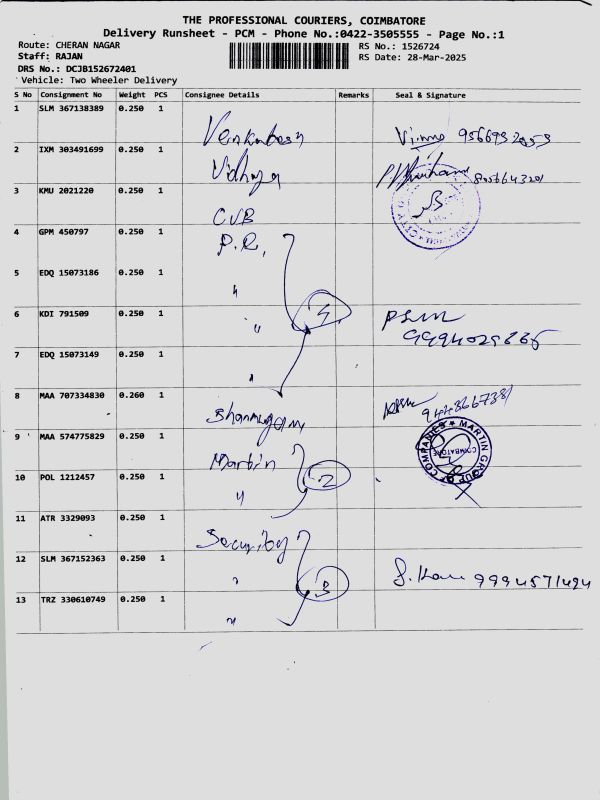 THE PROFESSIONAL COURIERS, COIMBATORE
Delivery Runsheet - PCM - Phone No.:0422-3505555 - Page No.:1
Route: CHERAN NAGAR
RS No.: 1526724
Staff: RAJAN
RS Date: 28-Mar-2025
DRS No.: DCJB152672401
Vehicle: Two Wheeler Delivery
S No Consignment No Weight PCS Consignee Details Remarks Seal & Signature
1 SLM 367138389 0.250 1 Venkatesh
2 IXM 303491699 0.250 1 Vidhya
3 KMU 2021220 0.250 1 CUB
4 GPM 450797 0.250 1 P.R.
5 EDQ 15073186 0.250 1 "
6 KDI 791509 0.250 1 "
7 EDQ 15073149 0.250 1 "
8 MAA 707334830 0.260 1 Shanmugam
9 MAA 574775829 0.250 1 Martin
MARTIN GROUP OF COMPANIES
COIMBATORE
10 POL 1212457 0.250 1 " 2
11 ATR 3329093 0.250 1 Security
12 SLM 367152363 0.250 1 " 3 9994571494
13 TRZ 330610749 0.250 1 "